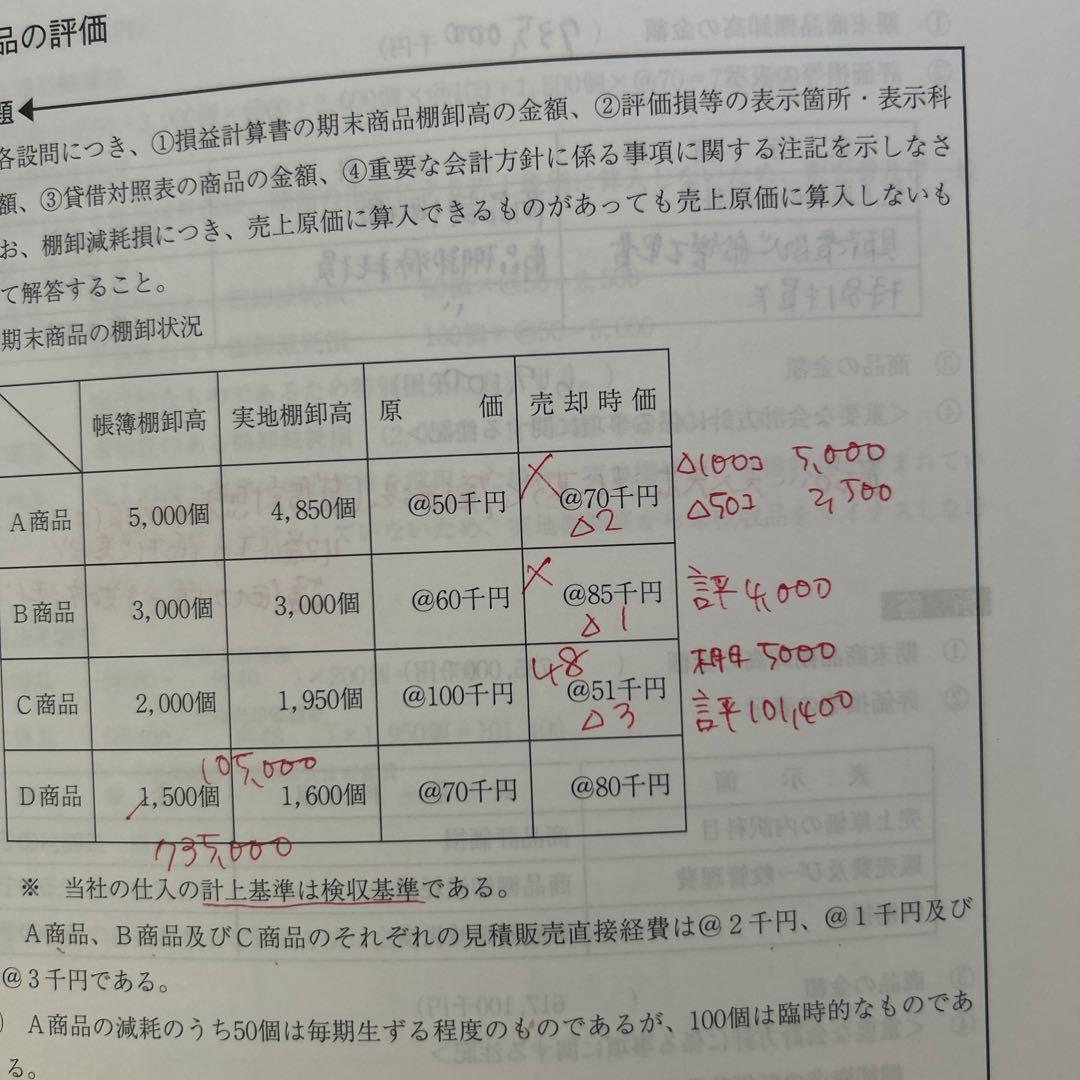 品の評価
題
各設問につき、①損益計算書の期末商品棚卸高の金額、②評価損等の表示箇所・表示科
額、③貸借対照表の商品の金額、④重要な会計方針に係る事項に関する注記を示しなさ
お、棚卸減耗損につき、売上原価に算入できるものがあっても売上原価に算入しないも
て解答すること。
期末商品の棚卸状況
帳簿棚卸高 実地棚卸高 原価 売却時価
A商品 5,000個 4,850個 @50千円 @70千円
△2
△100コ 5,000
△50コ 2,500
B商品 3,000個 3,000個 @60千円 @85千円
△1
評 4,000
48
C商品 2,000個 1,950個 @100千円 @51千円
△3
棚 5000
評 101,400
105,000
D商品 1,500個 1,600個 @70千円 @80千円
735,000
※ 当社の仕入の計上基準は検収基準である。
A商品、B商品及びC商品のそれぞれの見積販売直接経費は@2千円、@1千円及び
@3千円である。
) A商品の減耗のうち50個は毎期生ずる程度のものであるが、100個は臨時的なものであ
る。